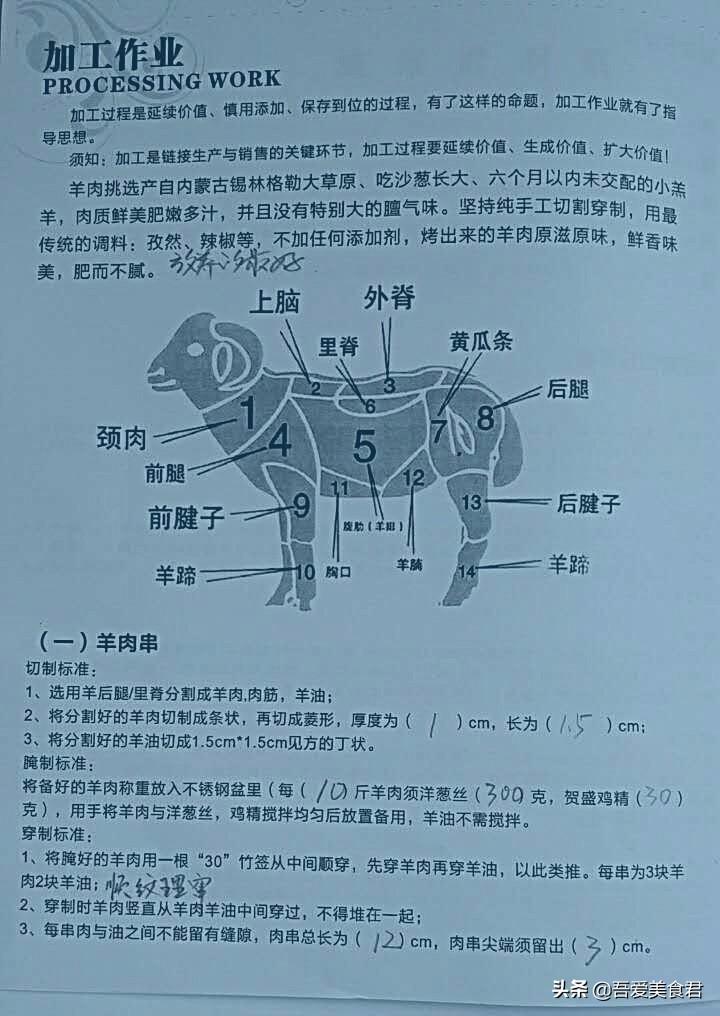 加工作业
PROCESSING WORK
加工过程是延续价值、慎用添加、保存到位的过程，有了这样的命题，加工作业就有了指
导思想。
须知：加工是链接生产与销售的关键环节，加工过程要延续价值、生成价值、扩大价值！
羊肉挑选产自内蒙古锡林格勒大草原、吃沙葱长大、六个月以内未交配的小羔
羊，肉质鲜美肥嫩多汁，并且没有特别大的膻气味。坚持纯手工切割穿制，用最
传统的调料：孜然、辣椒等，不加任何添加剂，烤出来的羊肉原滋原味，鲜香味
美，肥而不腻。
上脑
外脊
里脊
黄瓜条
后腿
2
3
6
1
4
5
7
8
颈肉
前腿
11
12
9
13
前腱子
后腱子
腹肋（羊排）
羊蹄
10
胸口
羊腩
14
羊蹄
（一）羊肉串
切制标准：
1、选用羊后腿/里脊分割成羊肉,肉筋，羊油；
2、将分割好的羊肉切制成条状，再切成菱形，厚度为（ 1 ）cm，长为（ 1.5 ）cm；
3、将分割好的羊油切成1.5cm*1.5cm见方的丁状。
腌制标准：
将备好的羊肉称重放入不锈钢盆里（每（ 10 斤羊肉须洋葱丝（ 300 克，贺盛鸡精（ 30 ）
克），用手将羊肉与洋葱丝，鸡精搅拌均匀后放置备用，羊油不需搅拌。
穿制标准：
1、将腌好的羊肉用一根“30”竹签从中间顺穿，先穿羊肉再穿羊油，以此类推。每串为3块羊
肉2块羊油；顺纹理穿
2、穿制时羊肉竖直从羊肉羊油中间穿过，不得堆在一起；
3、每串肉与油之间不能留有缝隙，肉串总长为（ 12 ）cm，肉串尖端须留出（ 3 ）cm。
头条 @吾爱美食君